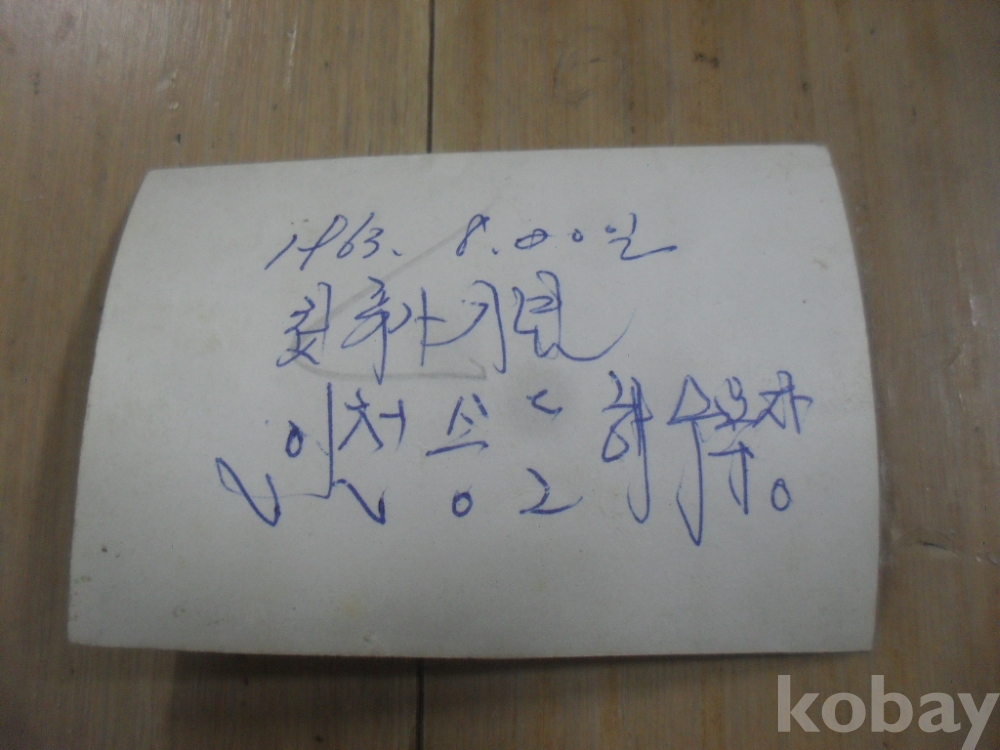 1963. 8. 20일
첫 휴가 기념
인천 송도 해수욕장
kobay